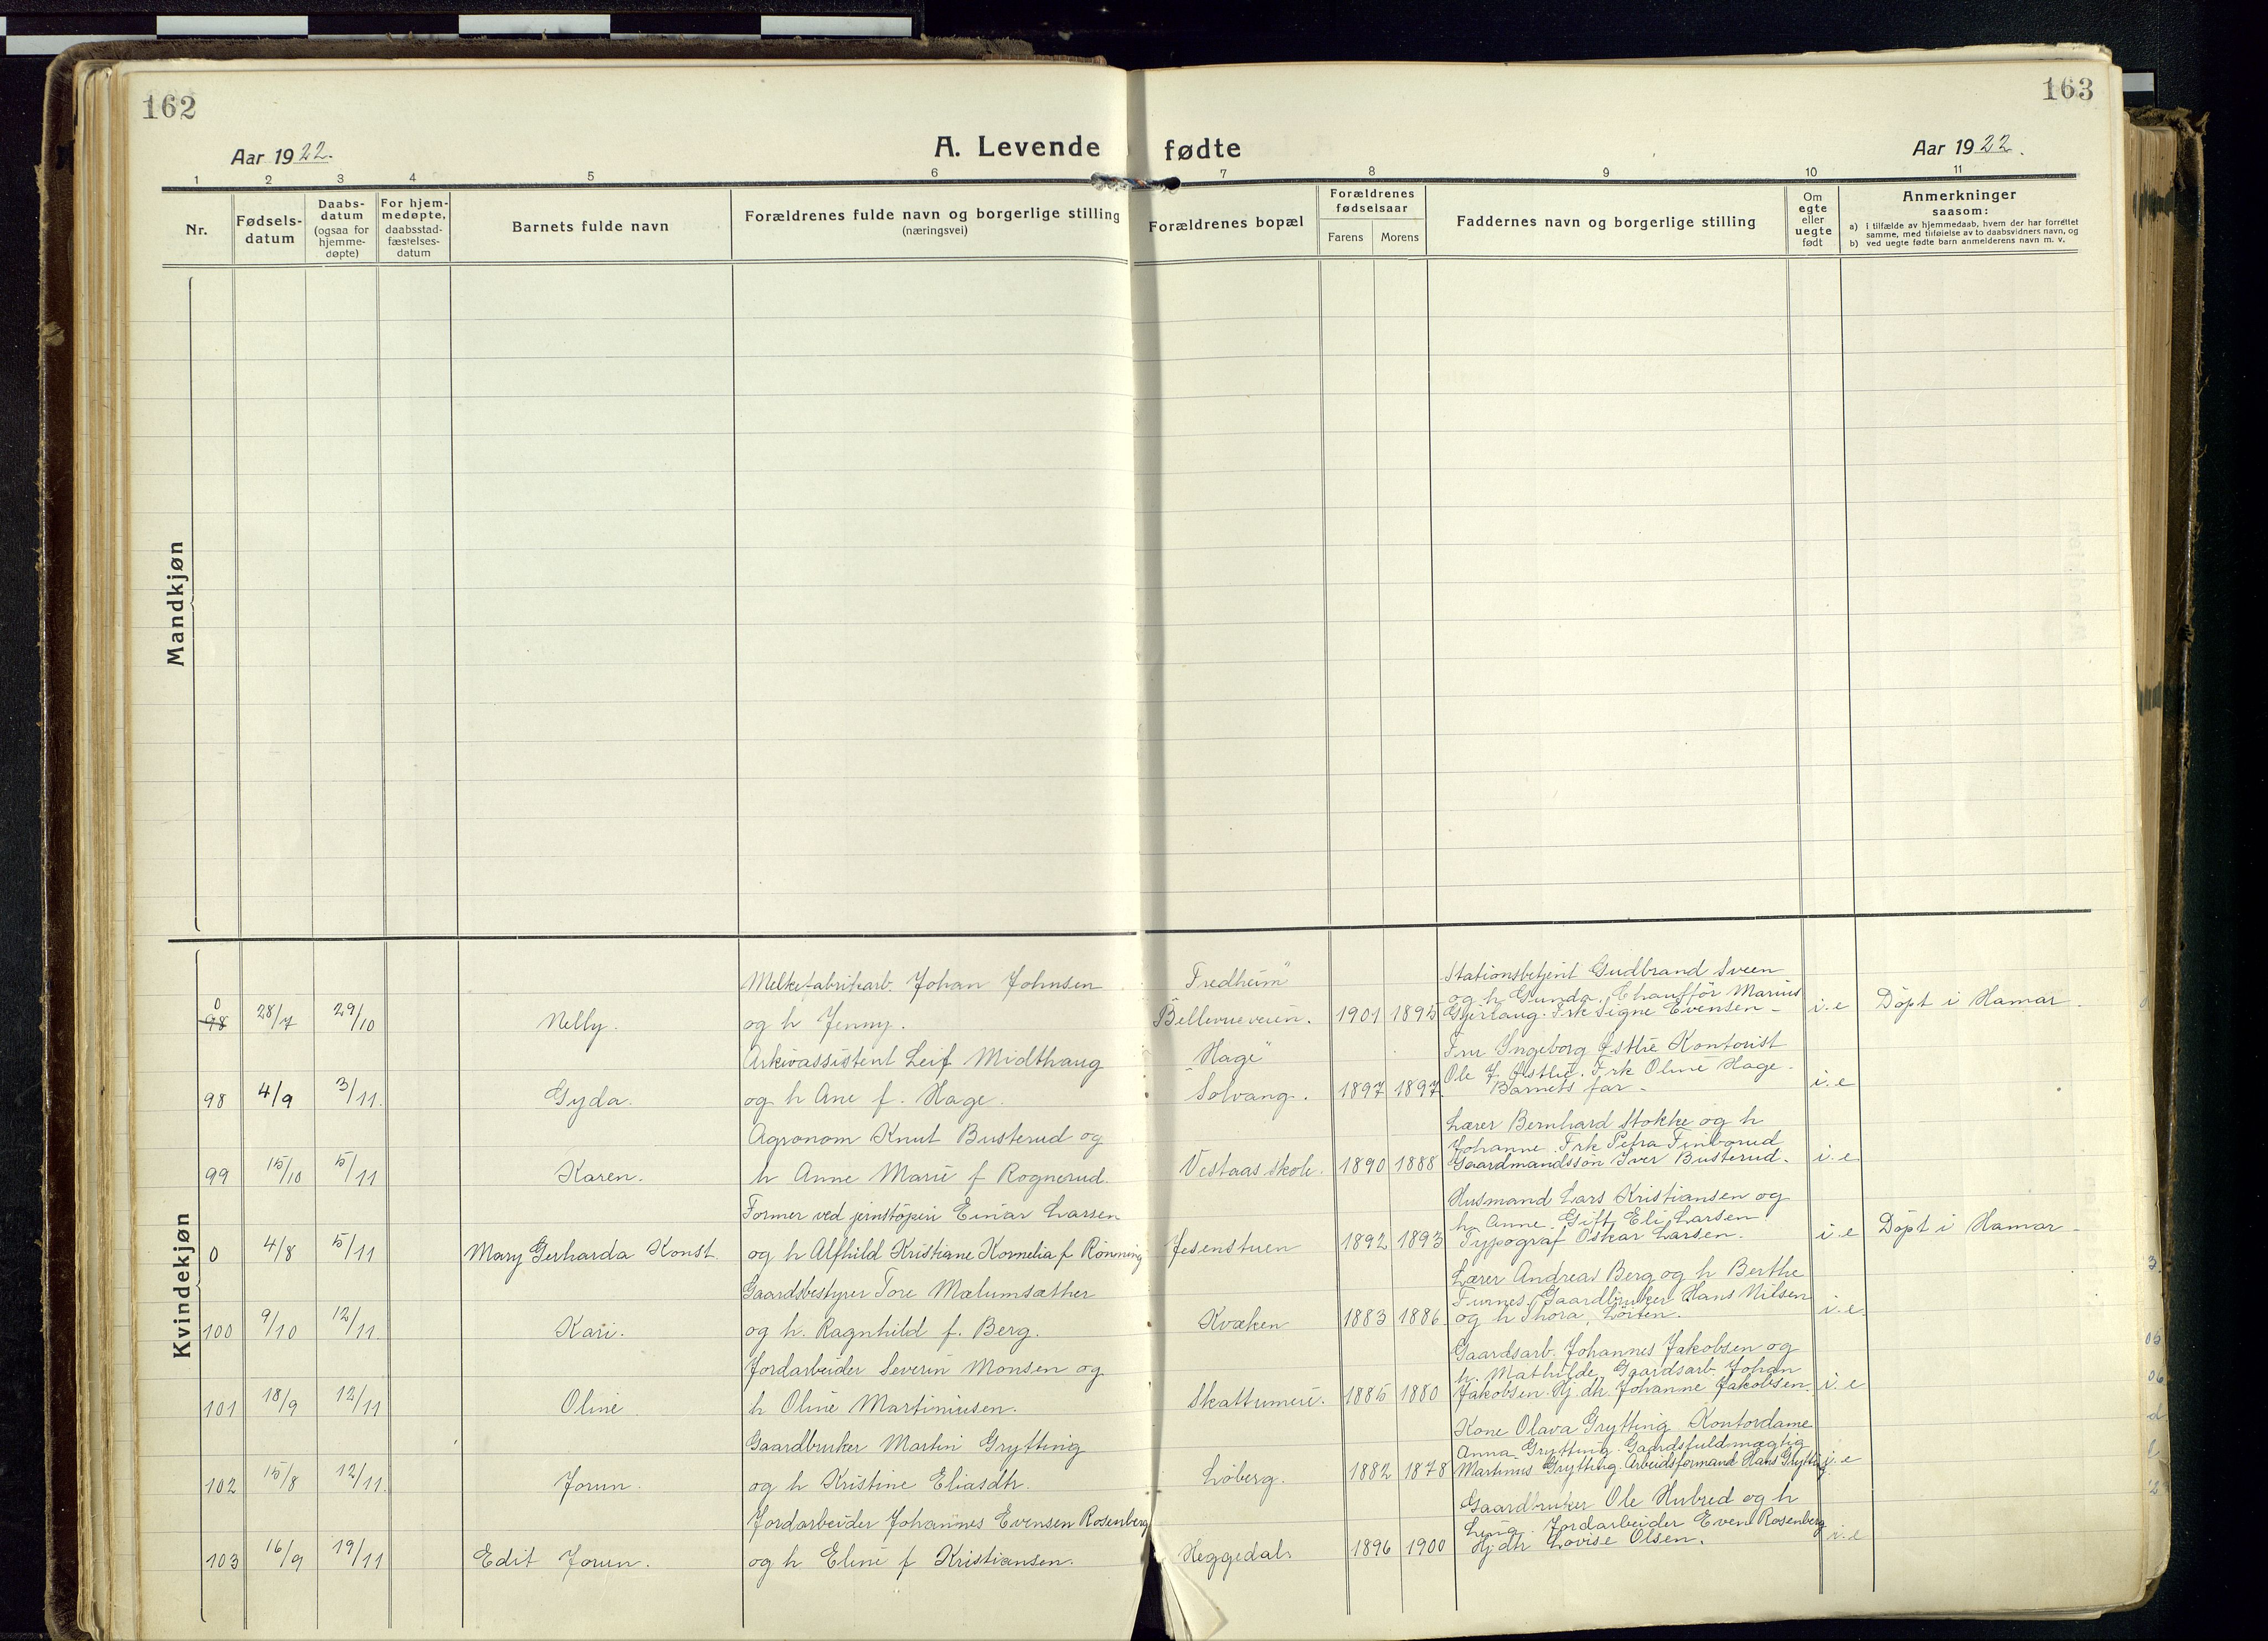 162
163
Aar 1922.
A. Levende fødte
Aar 1922.
1 2 3 4 5 6 7 8 9 10 11
Nr.
Fødsels-
datum
Daabs-
datum
(ogsaa for
hjemme-
døpte)
For hjem-
medøpte,
daabsstad-
fæstelses-
datum
Barnets fulde navn
Forældrenes fulde navn og borgerlige stilling
(næringsvei)
Forældrenes bopæl
Forældrenes
fødselsaar
Farens Morens
Faddernes navn og borgerlige stilling
Om
egte
eller
uegte
født
Anmerkninger
saasom:
a) i tilfælde av hjemmedaab, hvem der har forrettet
samme, med tilføielse av to daabsvidners navn, og
b) ved uegte fødte barn anmelderens navn m. v.
Mandkjøn
Kvindekjøn
0
98
28/7
29/10
Nelly.
Melkefabrikarb. Johan Johnsen
og h Jenny.
Fredheim"
Bellevueveien.
1901 1895
Stationsbetjent Gudbrand Sveen
og h Gunda, Chauffør Marius
Gjerlaug. Frk Signe Evensen -
i. e
Döpt i Hamar.
98
4/9
3/11.
Gyda.
Arkivassistent Leif Midthaug
og h Ane f. Hage.
Hage"
Solvang.
1897 1897
Fru Ingeborg Østlie Kontorist
Ole J. Østlie. Frk Oline Hage.
Barnets far.
i. e
99
15/10
5/11
Karen.
Agronom Knut Busterud og
h Anne Marie f Rognerud.
Vestaas skole.
1890 1888
Lærer Bernhard Stokke og h
Johanne. Frk Petra Finborud
Gaardmandssøn Iver Busterud.
i. e.
0
4/8
5/11
Mary Gerharda Konst.
Former ved jernstöperi Einar Larsen
og h Alfhild Kristiane Kornelia f Rönning
Jesenstuen
1892 1893
Husmand Lars Kristiansen og
h. Anne. Gift Eli Larsen.
Typograf Oskar Larsen.
i. e
Döpt i Hamar
100
9/10
12/11.
Kari.
Gaardsbestyrer Tore Mælumsæther
og h. Ragnhild f. Berg.
Kvæken
1883 1886
Lærer Andreas Berg og h Berthe
Furnes, Gaardbruker Hans Nilsen
og h Thora, Löiten.
i. e.
101
18/9
12/11
Oline
Jordarbeider Severin Monsen og
h Oline Martiniusen.
Skattumeie.
1885 1880
Gaardsarb. Johannes Jakobsen og
h. Mathilde, Gaardsarb. Johan
Jakobsen. Hj. dtr. Johanne Jakobsen.
i. e
102
15/8
12/11.
Jorun.
Gaardbruker Martin Grytting
og h Kristine Eliasdtr.
Löberg.
1882 1878
Kone Olava Grytting Kontordame
Anna Grytting. Gaardsfuldmægtig
Martinus Grytting. Arbeidsformand Hans Grytting
i. e
103
16/9
19/11
Edit Jorun.
Jordarbeider Johannes Evensen Rosenberg
og h Eline f Kristiansen.
Heggedal.
1896 1900
Gaardbruker Ole Hubred og h
Lina. Jordarbeider Even Rosenberg
Hj. dtr Lovise Olsen.
i. e